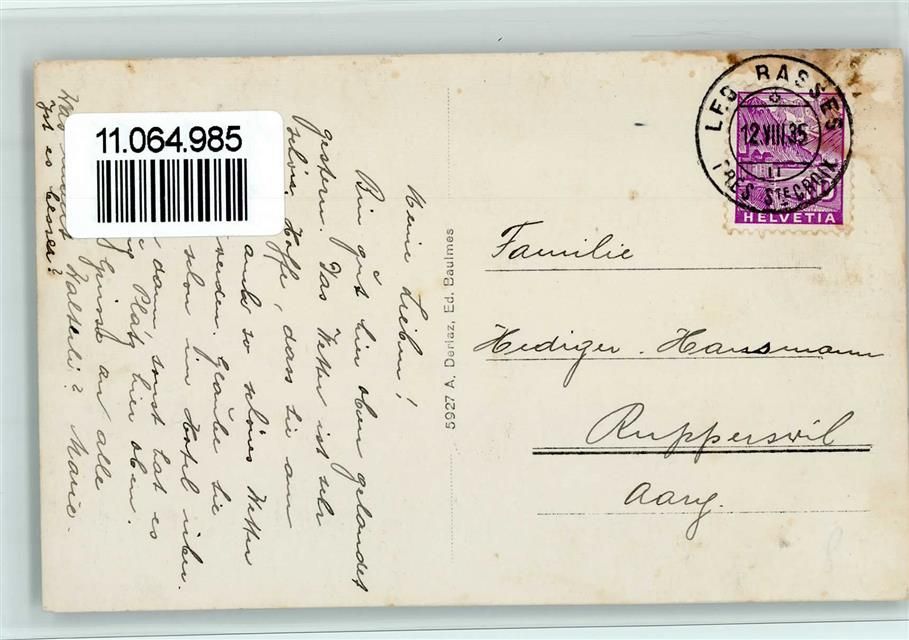 11.064.985
LES RASSES
12.VIII.35
PRÈS STE CROIX
HELVETIA
Meine Lieben!
Bin gut hier oben gelandet
gestern. Das Wetter ist sehr
schön, hoffe, dass Sie am
auch so schönes Wetter
werden. Glaube Sie
schon im Hotel
dann, sonst hat es
Platz hier oben.
Grüsse an alle
Marie.
Walterli?
Gat es besser?
5927 A. Deriaz, Ed. Baulmes
Familie
Hediger-Haussmann
Rupperswil
Aarg.